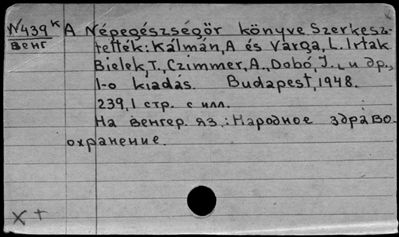 N439 K A Népegészségőr könyve Szerkesz-
Венг tették: Kálmán, A és Varga, L. Irtak
Bielek, T., Czimmer, A., Dobó, J., и др.,
1-o kiadás. Budapest, 1948.
239,1 стр. с илл.
На венгер. яз.: Народное здраво-
охранение.
X +